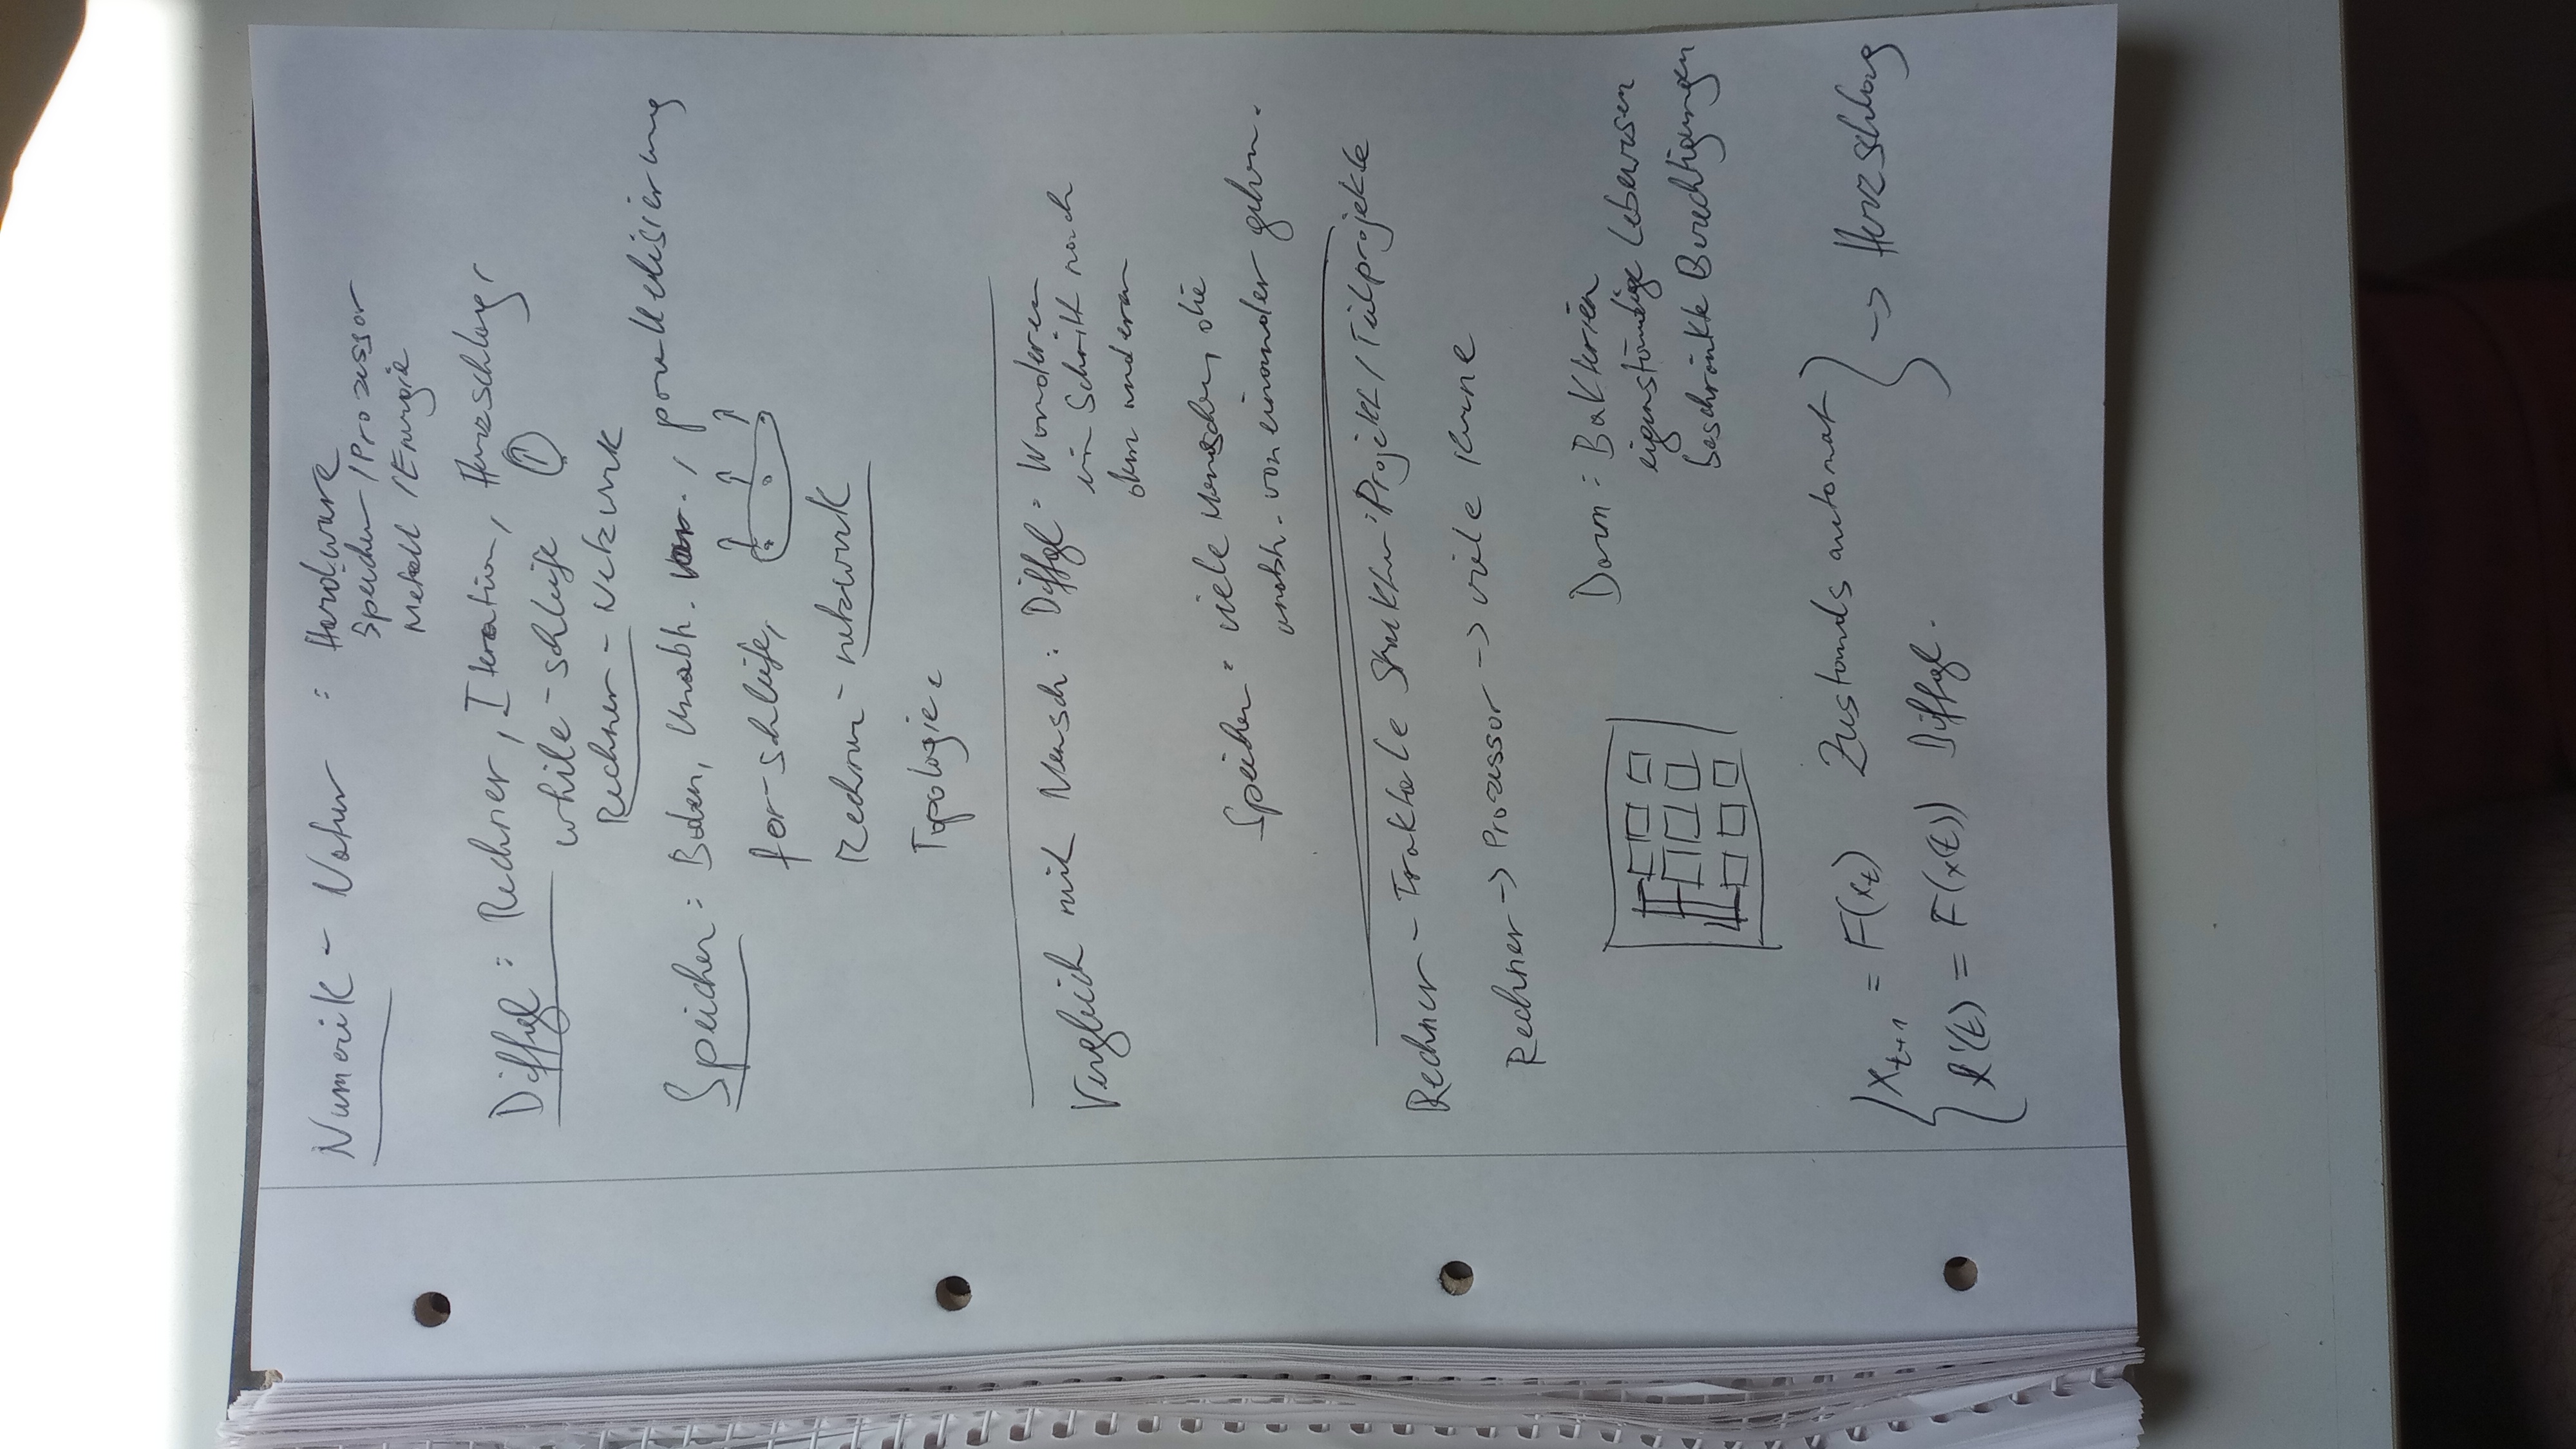 Numerik - Natur : Hardware
Speicher / Prozessor
Metall / Energie
Diffgl : Rechner, Iteration, Herzschlag,
while-schleife
Rechner - Netzwerk
Speicher : Boden, Unabh. Var., parallelisierung
for-schleife,
Rechner - netzwerk
Topologie.
Vergleich mit Mensch : Diffgl : Wanderen
ein Schritt nach
dem anderen
Speicher : viele Menschen, die
unabh. voneinander gehen.
Rechner - Fraktale Struktur : Projekt / Teilprojekte
Rechner -> Prozessor -> viele Kerne
Darm : Bakterien
eigenständige Lebewesen
beschränkte Berechtigungen
x_{t+1} = F(x_t) Zustandsautomat
x'(t) = F(x(t)) Diffgl.
-> Herzschlag